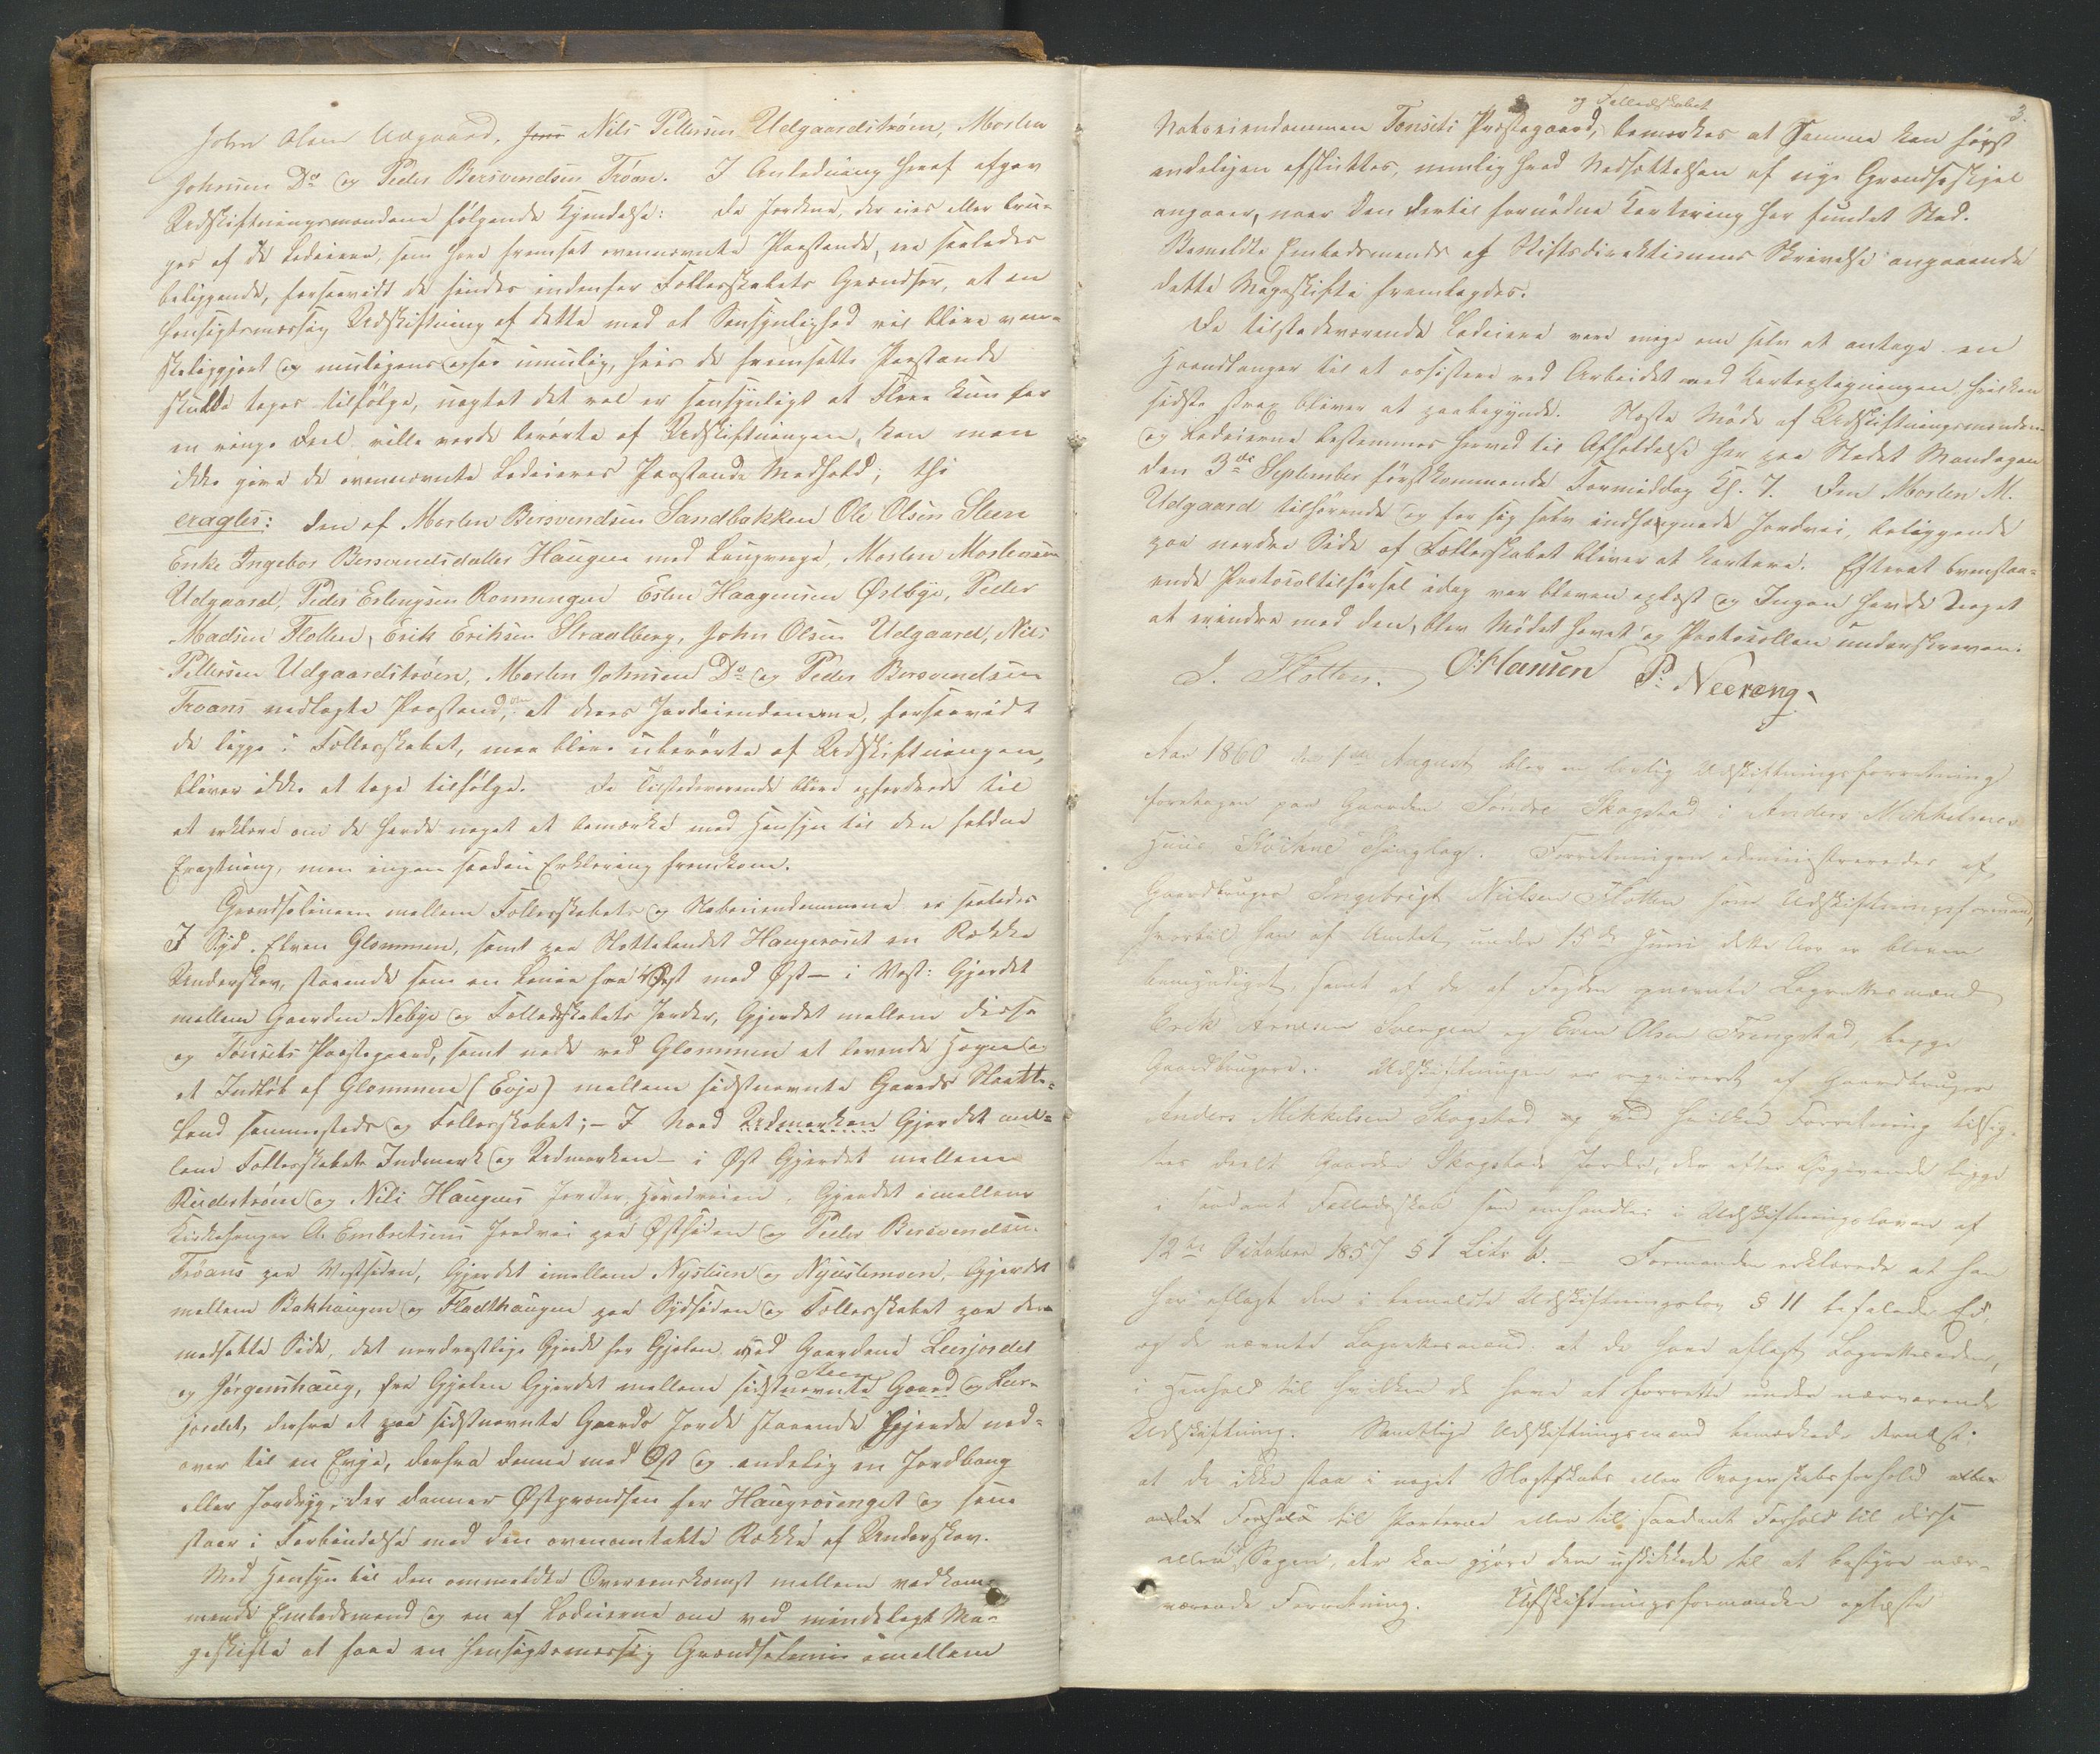 John Olsen Udgaard, Jens Nils Pettersen Udgaardstrøen, Morten
Johnsen Do og Peder Bersvendsen Trøan. I Anledning heraf afgav
Udskiftningsmændene følgende Kjendelse: De Jorder, der eies eller bru-
ges af de Lodeiere, som have fremsat ovennævnte Paastande, ere saaledes
beliggende, forsaavidt de findes indenfor Fællesskabets Grændser, at en
hensigtsmæssig Udskiftning af dette med al Sansynlighed vil blive van-
skeliggjort og muligens ogsaa umulig, hvis de fremsatte Paastande
skulde tages tilfølge, uagtet det vel er sansynligt at Flere kun for
en ringe Deel ville vorde berørte af Udskiftningen, kan man
ikke give de ovennævnte Lodeieres Paastande Medhold; thi
eragtes: Den af Morten Bersvendsen Sandbakken Ole Olsen Steen
Enke Ingebor Bersvendsdatter Haugen med Laugværge, Morten Mortensen
Udgaard, Peder Erlingsen Ronningen Esten Haagensen Østbye, Peder
Madsen Flotten, Erik Eriksen Straalberg, John Olsen Udgaard, Nils
Pettersen Udgaardstrøen, Morten Johnsen Do og Peder Bersvendsen
Trøans nedlagte Paastand, om at deres Jordeiendomme, forsaavidt
de ligge i Fællesskabet, maa blive uberørte af Udskiftningen,
bliver ikke at tage tilfølge. De Tilstedeværende bleve opfordrede til
at erklære om de havde noget at bemærke med Hensyn til den faldne
Eragtning, men ingen saadan Erklæring fremkom.
Grændselinien mellem Fællesskabets og Naboeiendommene er saaledes
I Syd. Elven Glommen, samt paa Slottelandet Haugerøset en Række
Underskov, staaende som en Linie fra Vest mod Øst – i Vest: Gjerdet
mellem Gaarden Nebye og Fællesskabets Jorder, Gjerdet mellem disse
og Tønsets Præstegaard, samt nede ved Glommen et levende Hegn og
et Indløb af Glommen (Evje) mellem sidstnævnte Gaards Slaatte-
land sammesteds og Fællesskabet; – I Nord Udmarken Gjerdet mel-
lem Fællesskabets Indmark og Udmarken – i Øst Gjerdet mellem
Rudstrøen og Nils Haugens Jorder, Hovedveien, Gjerdet imellem
Kirkesanger A. Embretsens Jordvei paa Østsiden og Peder Bersvendsen
Trøans paa Vestsiden, Gjerdet imellem Nystuen og Nyustemoen, Gjerdet
mellem Bakhaugen og Fladthaugen paa Sydsiden og Fællesskabet paa den
modsatte Side, det nordvestlige Gjerde for Gjelen ved Gaardene Leerjordet
og Jørgenshaug, fra Gjelen Gjerdet mellem sidstnævnte Steen Gaard og Leer-
jordet, derfra et paa sidstnævnte Gaards Jorde staaende Gjerde ned-
over til en Evje, derfra denne mod Øst og endelig en Jordbang
eller Jordryg, der danner Østgrændsen for Haugrosenget og som
staar i Forbindelse med den ovenomtalte Række af Underskov.
Med Hensyn til den ommeldte Overeenskomst mellem vedkom-
mende Embedsmænd og en af Lodeierne om ved mindeligt Ma-
geskifte at faae en hensigtsmæssig Grændselinie imellem
3.
Naboeiendommen Tønsets Præstegaard, og Fælledsskabet bemærkes at Samme kan først
endeligen afsluttes, nemlig hvad Nedsættelsen af nye Grændseskjel
angaaer, naar den dertil fornødne Kartering har fundet Sted.
Bemeldte Embedsmænds og Stiftsdirektionens Skrivelse angaaende
dette Mageskifte fremlagdes.
De tilstedeværende Lodeiere vare enige om selv at antage en
Haandlanger til at assistere ved Arbeidet med Kartoptagningen hvilken
sidste strax bliver at paabegynde. Næste Møde af Udskiftningsmændene
og Lodeierne bestemmes herved til Afholdelse her paa Stedet Mandagen
den 3de September førstkommende Formiddag Kl. 7. Den Morten M.
Udgaard tilhørende og for sig selv indhegnede Jordvei, beliggende
paa nordre Side af Fællesskabet bliver at kartere. Efterat ovenstaa-
ende Protocoltilførsel idag var bleven oplæst og Ingen havde Noget
at erindre mod den, blev Mødet hævet og Protocollen underskreven.
I. Flotten. O. Hansen P: Neeræng.
Aar 1860 den 1ste August blev en lovlig Udskiftningsforretning
foretagen paa Gaarden Søndre Skogstad i Anders Mikkelsens
Huus, Thinglag. Forretningen administreredes af
Gaardbruger Ingebrigt Nielsen Flotten som Udskiftningsformand,
hvortil han af Amtet under 15de Juni dette Aar er bleven
bemyndiget, samt af de af Fogden opnævnte Lagrettesmænd
Erik Arnesen Svergen og Even Olsen Trengstad, begge
Gaardbrugere. Udskiftningen er reqvireret af Gaardbruger
Anders Mikkelsen Skogstad og ved hvilken Forretning
deelt Gaarden Skogstads Jorder, der efter Opgivende ligge
i saadant Fælledsskab som omhandles i Udskiftningsloven af
12te October 1857 § 1 Litr b. – Formanden erklærede at han
har aflagt den i bemeldte Udskiftningslov § 11 befalede Ed,
og de nævnte Lagrettesmænd at de have aflagt Lagretteseden,
i Henhold til hvilken de have at forrette under nærværende
Udskiftning. Samtlige Udskiftningsmænd bemærkede dernæst:
at de ikke staa i noget Slægtskabs eller Svogerskabsforhold eller
andet Forhold til Parterne eller til saadant Forhold til disse
eller Sagen, der kan gjøre dem uskikkede til at bestyre nær-
værende Forretning. Udskiftningsformanden oplæste